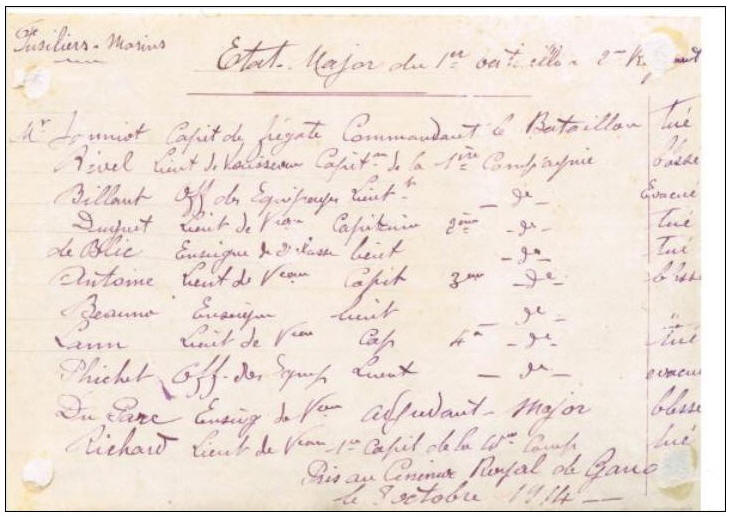 Fusiliers-Marins
Etat-Major du 1er bataillon 2me Régiment
Mr Jonniot Capit de frégate Commandant le Bataillon tué
Revel Lieut de Vaisseau Capitne de la 1ère Compagnie blessé
Billant Off des Equipages Lieut - de - Evacué
Duquet Lieut de Veau Capitaine 2ème - de - tué
de Blic Enseigne de 2e classe lieut - de - tué
Antoine Lieut de Veau Capit 3me - de - blessé
Enseigne lieut - de -
Lann Lieut de Veau Cap 4me - de - tué
Off. des Equip Lieut - de - evacué
Du Parc Enseig de Veau adjudant-Major blessé
Richard Lieut de Veau Capit de la Comp tué
Pris au Royal de Gand
le 8 octobre 1914 -